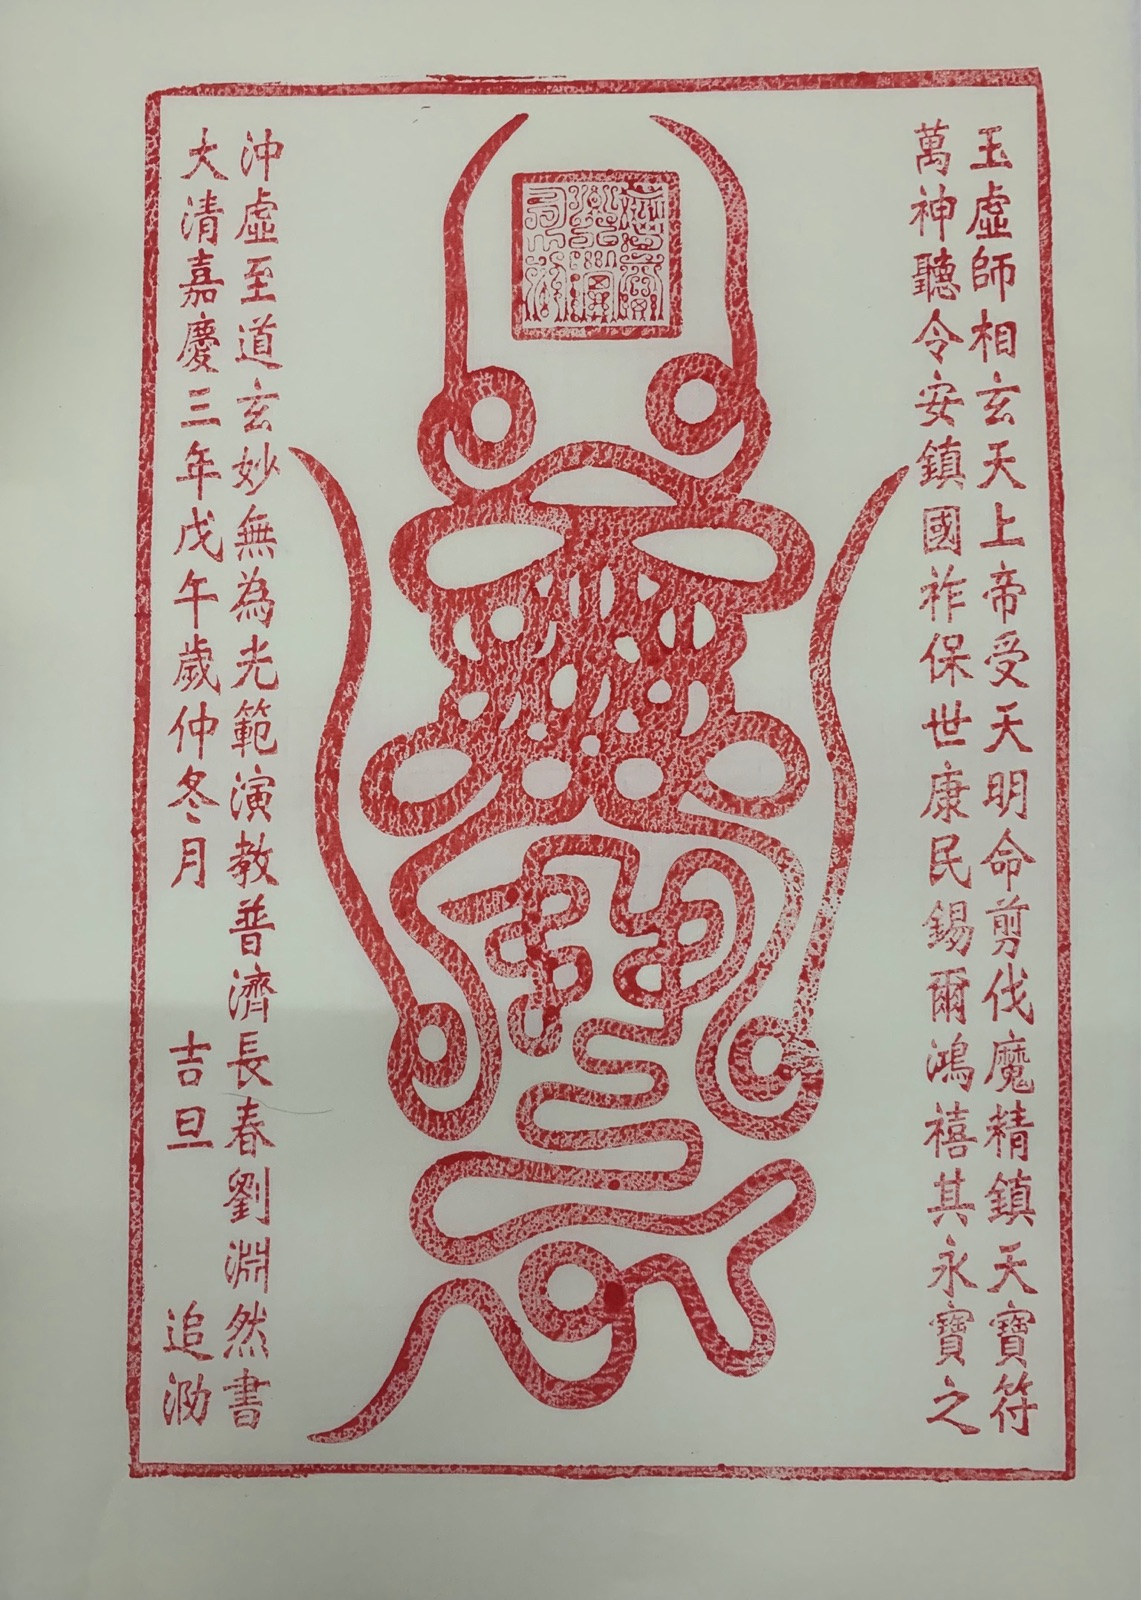 玉虛師相玄天上帝受天明命剪伐魔精鎮天寶符
萬神聽令安鎮國祚保世康民錫爾鴻禧其永寶之
沖虛至道玄妙無為光範演教普濟長春劉淵然書
大清嘉慶三年戊午歲仲冬月吉旦追泐